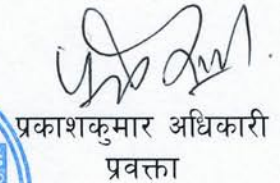 प्रकाशकुमार अधिकारी
प्रवक्ता